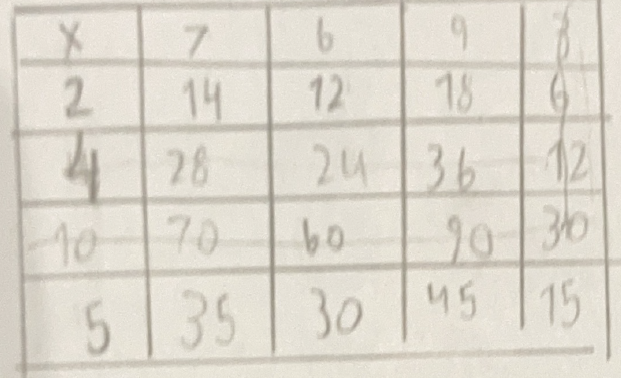 x 7 6 9
2 14 12 18 6
4 28 24 36 12
10 70 60 90 30
5 35 30 45 15